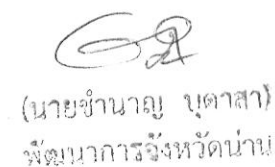 (นายชำนาญ บุดาสา)
พัฒนาการจังหวัดน่าน